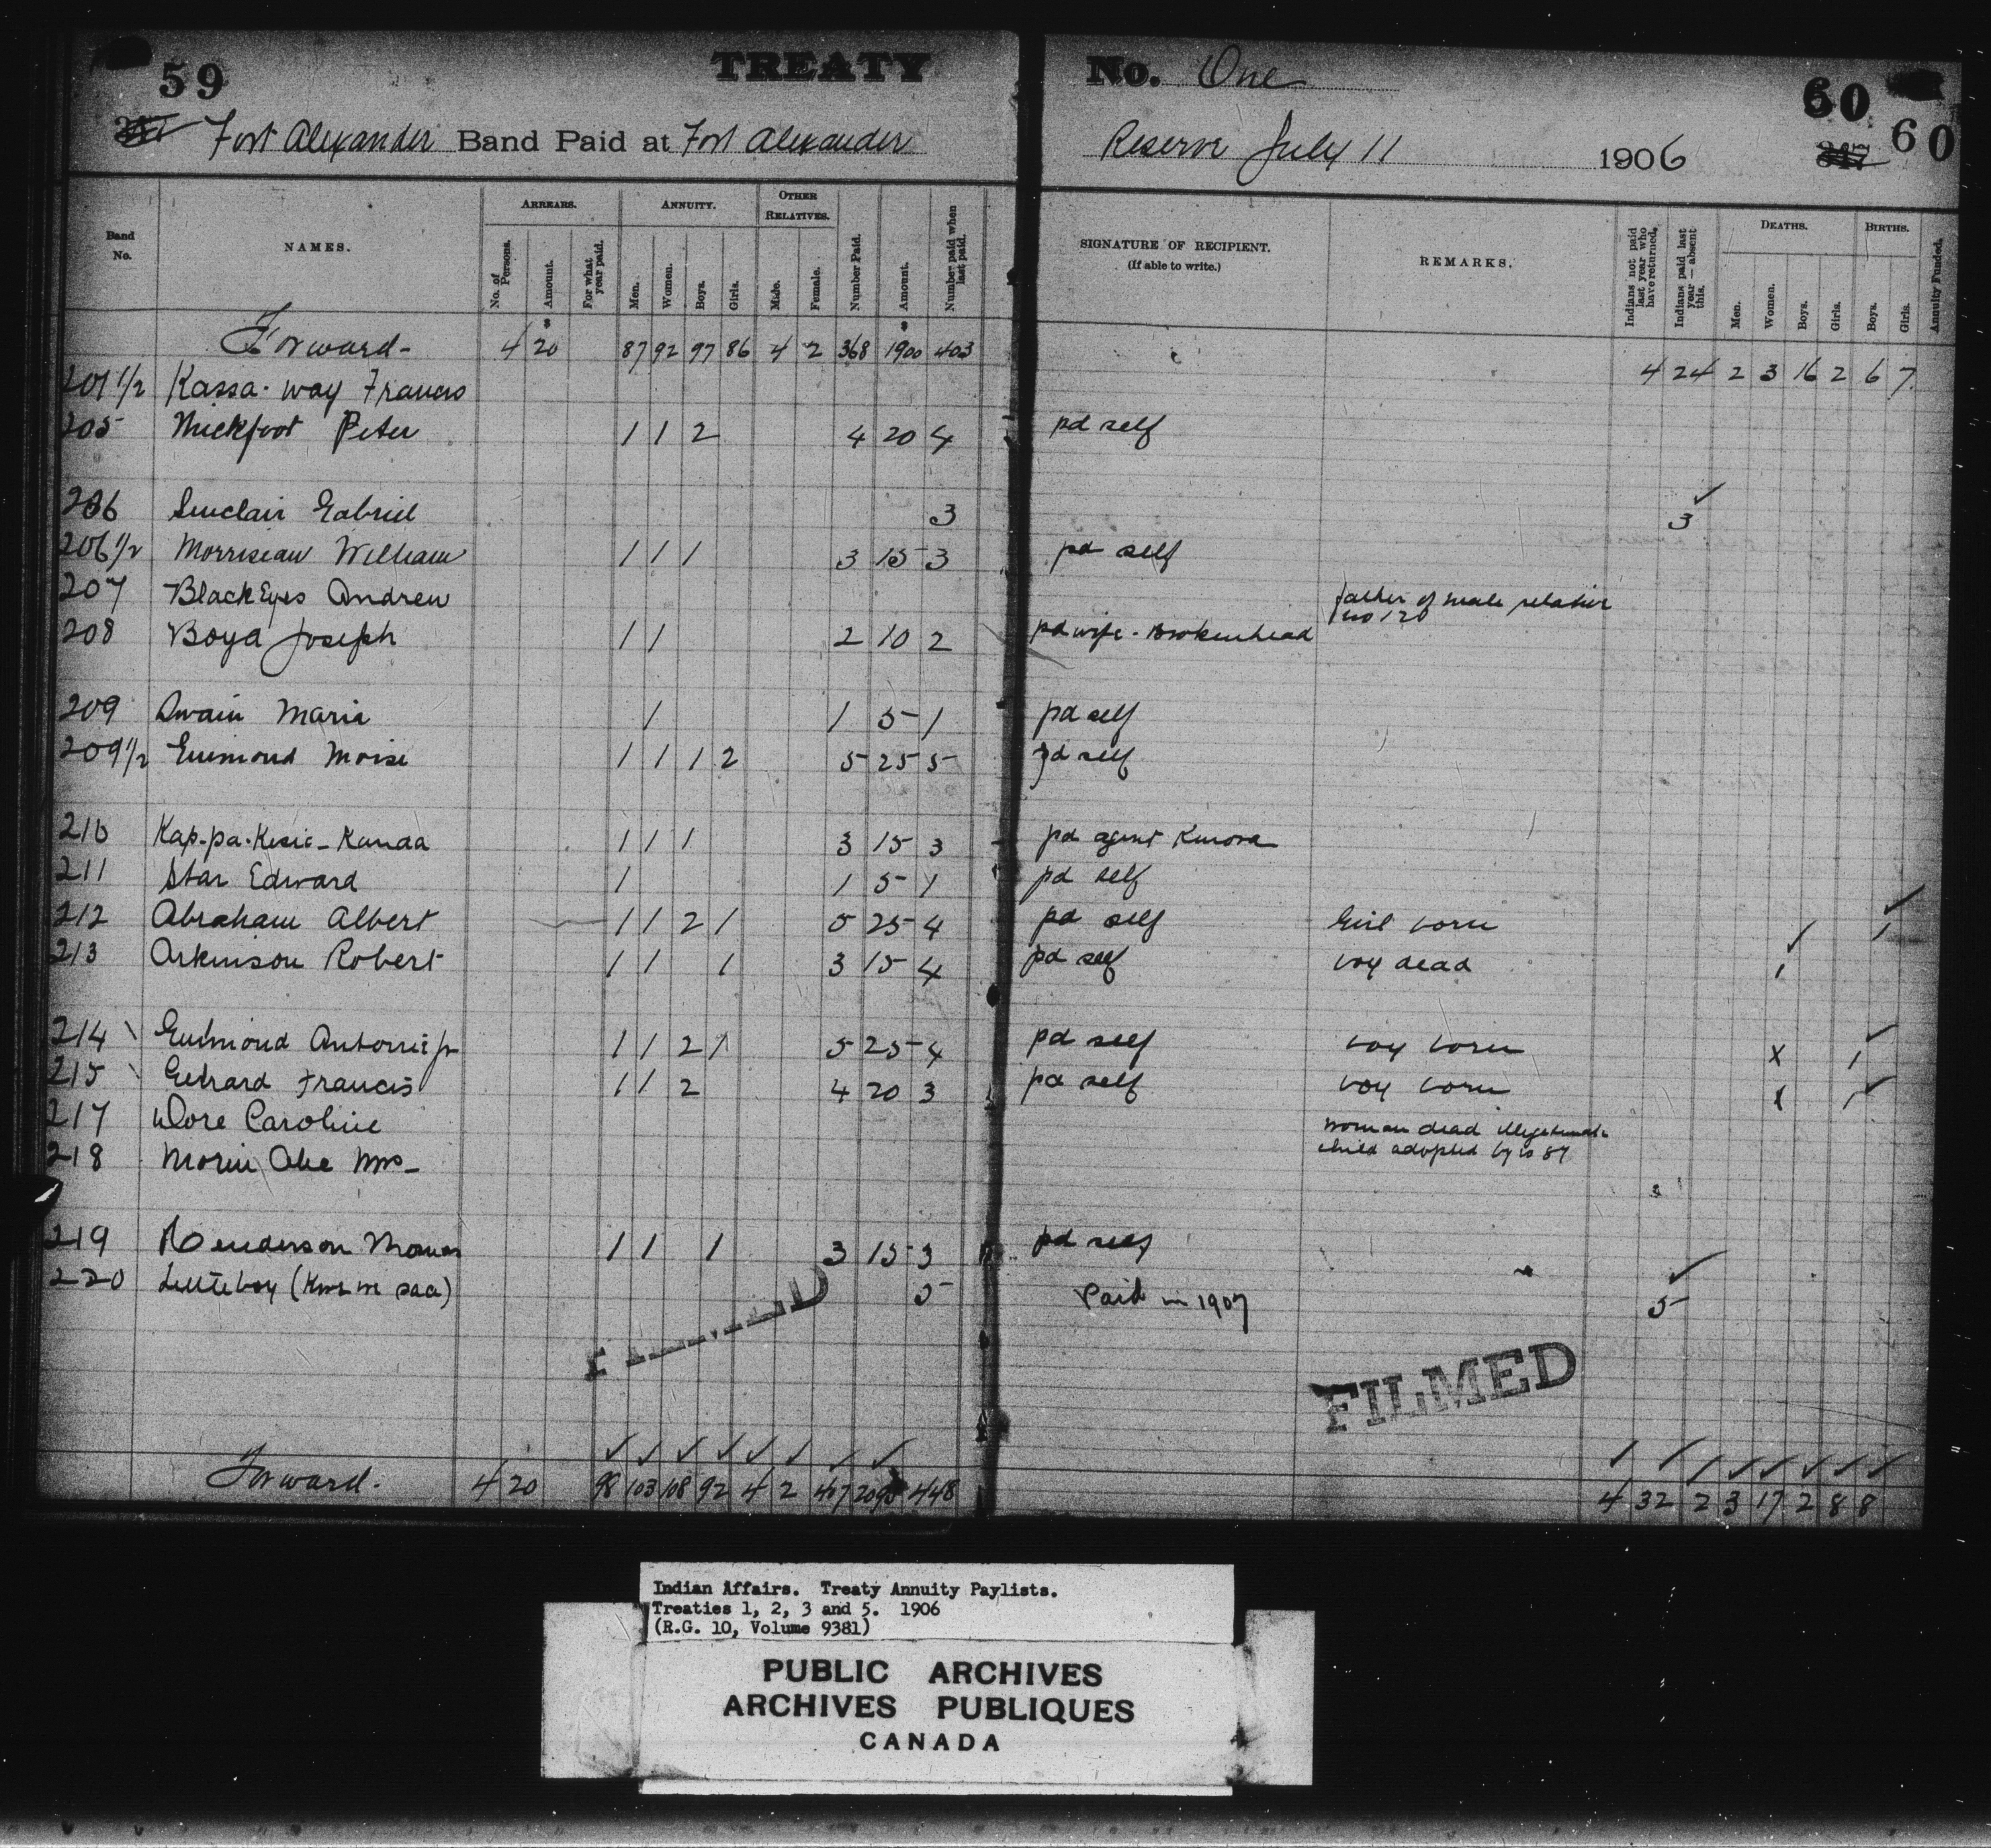 59 TREATY No. One 60
Fort Alexander Band Paid at Fort Alexander Reserve July 11 1906 60
Band No. NAMES. ARREARS. ANNUITY. OTHER RELATIVES. Number Paid. Amount. Number paid when last paid. SIGNATURE OF RECIPIENT. (If able to write.) REMARKS. Indians not paid last year who have returned. Indians paid last year — absent this. DEATHS. BIRTHS. Annuity Funded.
No. of Persons. Amount. For what year paid. Men. Women. Boys. Girls. Male. Female. Men. Women. Boys. Girls. Boys. Girls.
Forward- 4 20 87 92 97 86 4 2 368 1900 403 4 24 2 3 16 2 6 7
201 1/2 Kassa-way Francis
205 Thickfoot Peter 1 1 2 4 20 4 pd self
206 Sinclair Gabriel 3 3 ✓
206 1/2 Morriseau William 1 1 1 3 15 3 pd self
207 BlackEyes Andrew father of male relative no 120
208 Boyd Joseph 1 1 2 10 2 pd wife - Brokenhead
209 Swain Maria 1 1 5 1 pd self
209 1/2 Guimond Moise 1 1 1 2 5 25 5 pd self
210 Kap-pa-Kesic-Kanaa 1 1 1 3 15 3 pd agent Kenora
211 Star Edward 1 1 5 1 pd self
212 Abraham Albert 1 1 2 1 5 25 4 pd self Girl born 1 ✓
213 Arkinson Robert 1 1 1 3 15 4 pd self boy dead 1 ✓
214 Guimond Antoine jr 1 1 2 1 5 25 4 pd self boy born x 1 ✓
215 Francis 1 1 2 4 20 3 pd self boy born 1 1 ✓
217 Dore Caroline woman dead illegitimate
218 Morin Abe Mrs- child adopted by no 87
219 Henderson 1 1 1 3 15 3 pd self
220 Littleboy 5 Paid in 1907 5 ✓
FILMED
FILMED
Forward. 4 20 98 103 108 92 4 2 407 2095 448 4 32 2 3 17 2 8 8
Indian Affairs. Treaty Annuity Paylists.
Treaties 1, 2, 3 and 5. 1906
(R.G. 10, Volume 9381)
PUBLIC ARCHIVES
ARCHIVES PUBLIQUES
CANADA